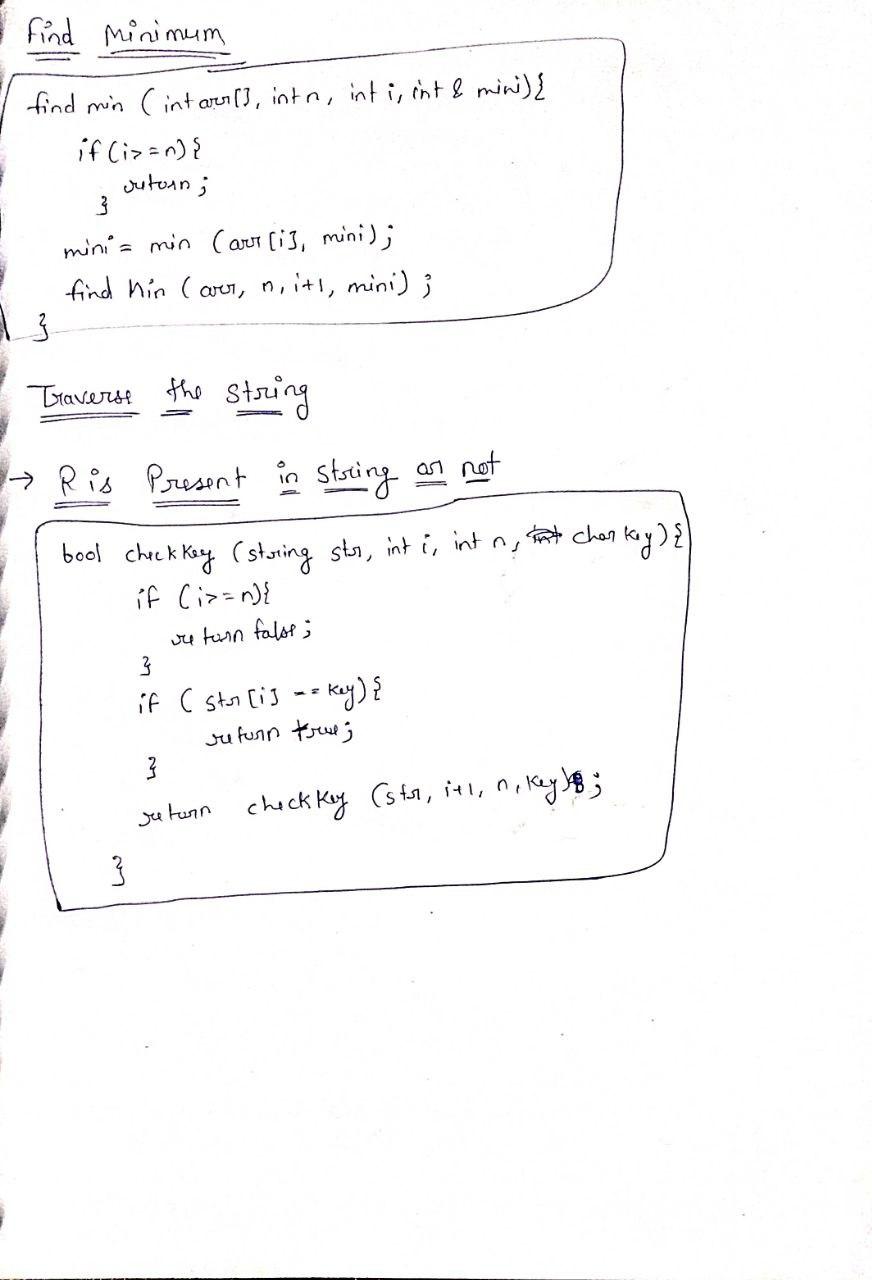 Find Minimum
find min (int arr[], int n, int i, int & mini){
if (i>=n){
return;
}
mini = min (arr[i], mini);
find Min (arr, n, i+1, mini);
}
Traverse the string
→ R is Present in string or not
bool checkkey (string str, int i, int n, int char key){
if (i>=n){
return false;
}
if (str[i] == key){
return true;
}
return checkkey (str, i+1, n, key);
}